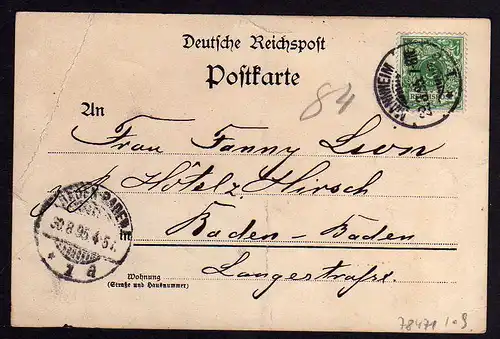 Deutsche Reichspost
Postkarte
84
MANNHEIM
An
Frau Fanny Leon
Hôtel z. Hirsch
Baden-Baden
BADEN-BADEN
30.8.95.4-5N.
* 1 a
Langestraße
Wohnung
(Straße und Hausnummer)
78471